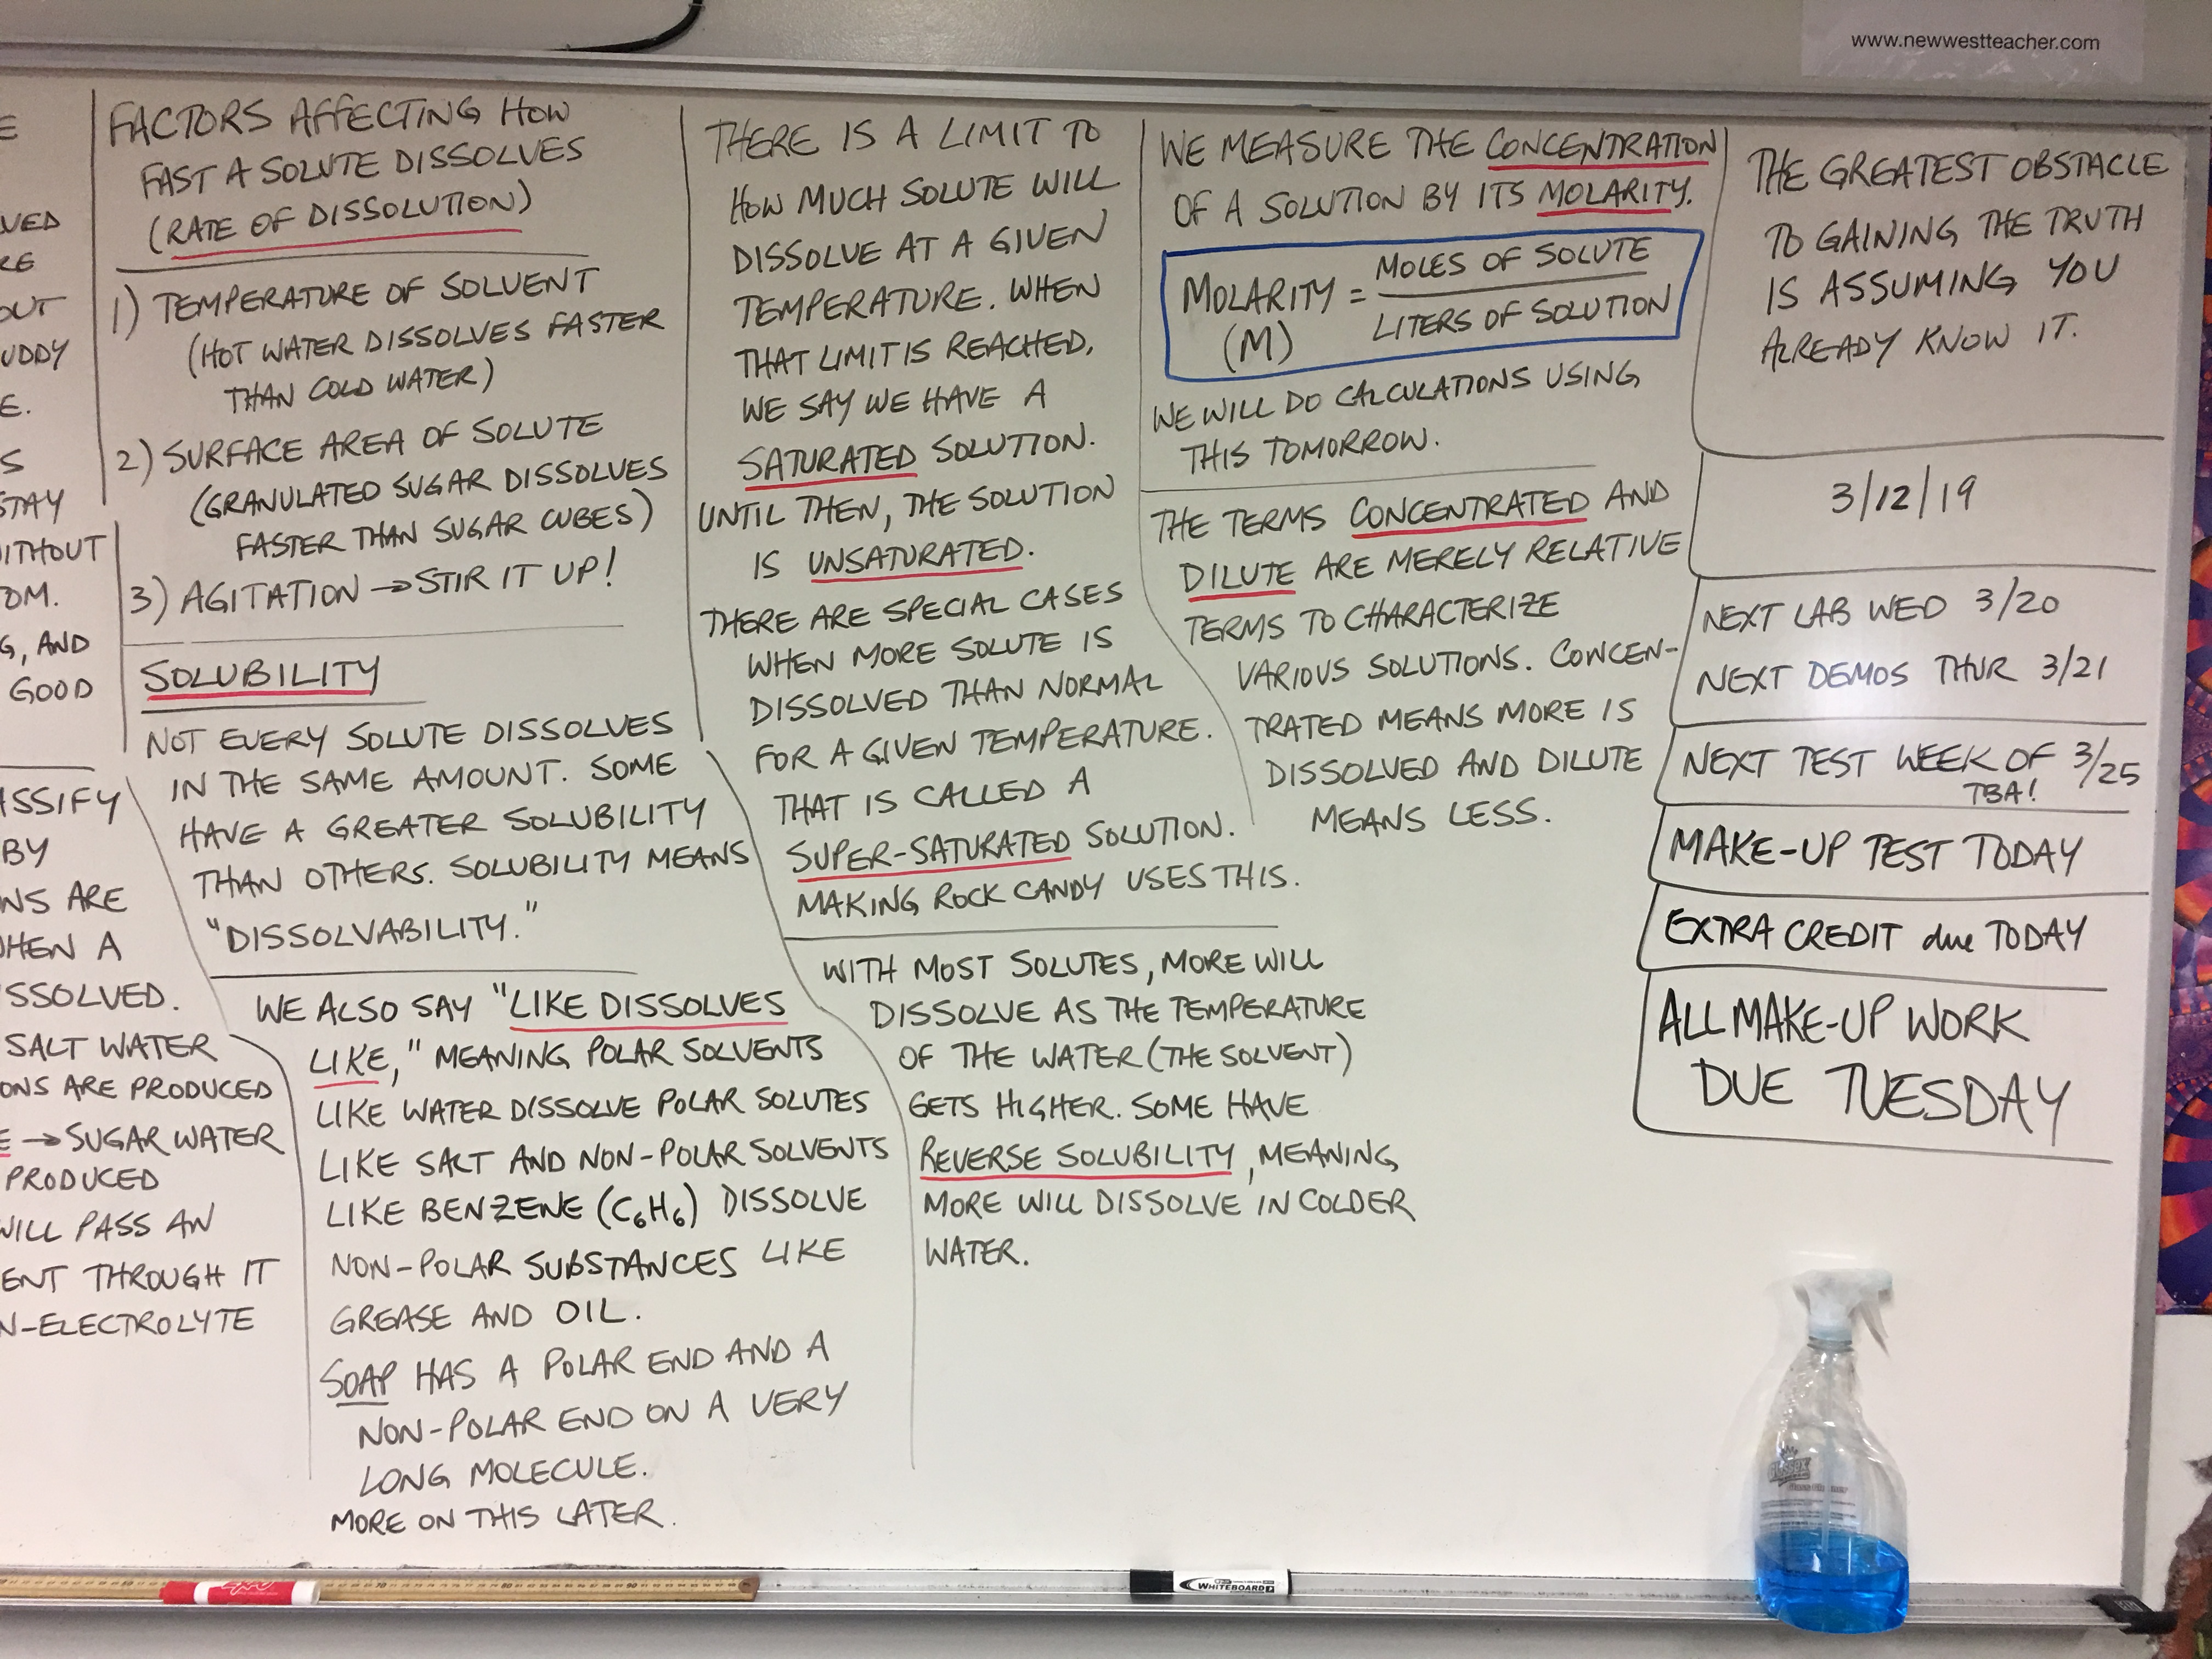 www.newwestteacher.com
E
VED
RE
OUT
UDDY
E.
S
STAY
WITHOUT
OM.
G, AND
GOOD
ASSIFY
BY
NS ARE
WHEN A
SSOLVED.
SALT WATER
ONS ARE PRODUCED
E → SUGAR WATER
PRODUCED
WILL PASS AN
ENT THROUGH IT
N-ELECTROLYTE
FACTORS AFFECTING HOW
FAST A SOLUTE DISSOLVES
(RATE OF DISSOLUTION)
1) TEMPERATURE OF SOLVENT
(HOT WATER DISSOLVES FASTER
THAN COLD WATER)
2) SURFACE AREA OF SOLUTE
(GRANULATED SUGAR DISSOLVES
FASTER THAN SUGAR CUBES)
3) AGITATION → STIR IT UP!
SOLUBILITY
NOT EVERY SOLUTE DISSOLVES
IN THE SAME AMOUNT. SOME
HAVE A GREATER SOLUBILITY
THAN OTHERS. SOLUBILITY MEANS
"DISSOLVABILITY."
WE ALSO SAY "LIKE DISSOLVES
LIKE," MEANING POLAR SOLVENTS
LIKE WATER DISSOLVE POLAR SOLUTES
LIKE SALT AND NON-POLAR SOLVENTS
LIKE BENZENE (C₆H₆) DISSOLVE
NON-POLAR SUBSTANCES LIKE
GREASE AND OIL.
SOAP HAS A POLAR END AND A
NON-POLAR END ON A VERY
LONG MOLECULE.
MORE ON THIS LATER.
THERE IS A LIMIT TO
HOW MUCH SOLUTE WILL
DISSOLVE AT A GIVEN
TEMPERATURE. WHEN
THAT LIMIT IS REACHED,
WE SAY WE HAVE A
SATURATED SOLUTION.
UNTIL THEN, THE SOLUTION
IS UNSATURATED.
THERE ARE SPECIAL CASES
WHEN MORE SOLUTE IS
DISSOLVED THAN NORMAL
FOR A GIVEN TEMPERATURE.
THAT IS CALLED A
SUPER-SATURATED SOLUTION.
MAKING ROCK CANDY USES THIS.
WITH MOST SOLUTES, MORE WILL
DISSOLVE AS THE TEMPERATURE
OF THE WATER (THE SOLVENT)
GETS HIGHER. SOME HAVE
REVERSE SOLUBILITY, MEANING
MORE WILL DISSOLVE IN COLDER
WATER.
WE MEASURE THE CONCENTRATION
OF A SOLUTION BY ITS MOLARITY.
MOLARITY = MOLES OF SOLUTE
(M) LITERS OF SOLUTION
WE WILL DO CALCULATIONS USING
THIS TOMORROW.
THE TERMS CONCENTRATED AND
DILUTE ARE MERELY RELATIVE
TERMS TO CHARACTERIZE
VARIOUS SOLUTIONS. CONCEN-
TRATED MEANS MORE IS
DISSOLVED AND DILUTE
MEANS LESS.
THE GREATEST OBSTACLE
TO GAINING THE TRUTH
IS ASSUMING YOU
ALREADY KNOW IT.
3/12/19
NEXT LAB WED 3/20
NEXT DEMOS THUR 3/21
NEXT TEST WEEK OF 3/25
TBA!
MAKE-UP TEST TODAY
EXTRA CREDIT due TODAY
ALL MAKE-UP WORK
DUE TUESDAY
WHITEBOARD